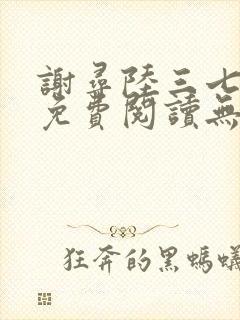 謝尋陸三七
免費閱讀無
狂奔的黑螞蟻